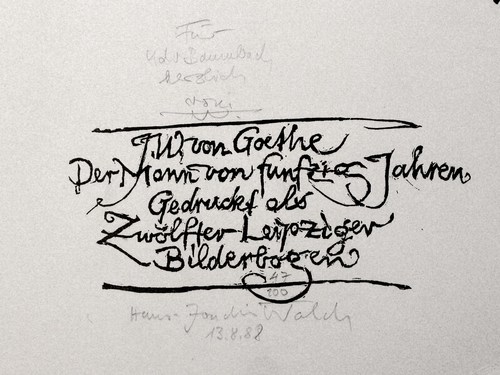 Für
herzlich
J.W. von Goethe
Der Mann von funfzig Jahren
Gedruckt als
Zwölfter Leipziger
Bilderbogen
47
100
Hans-Joachim Walch
13.8.88